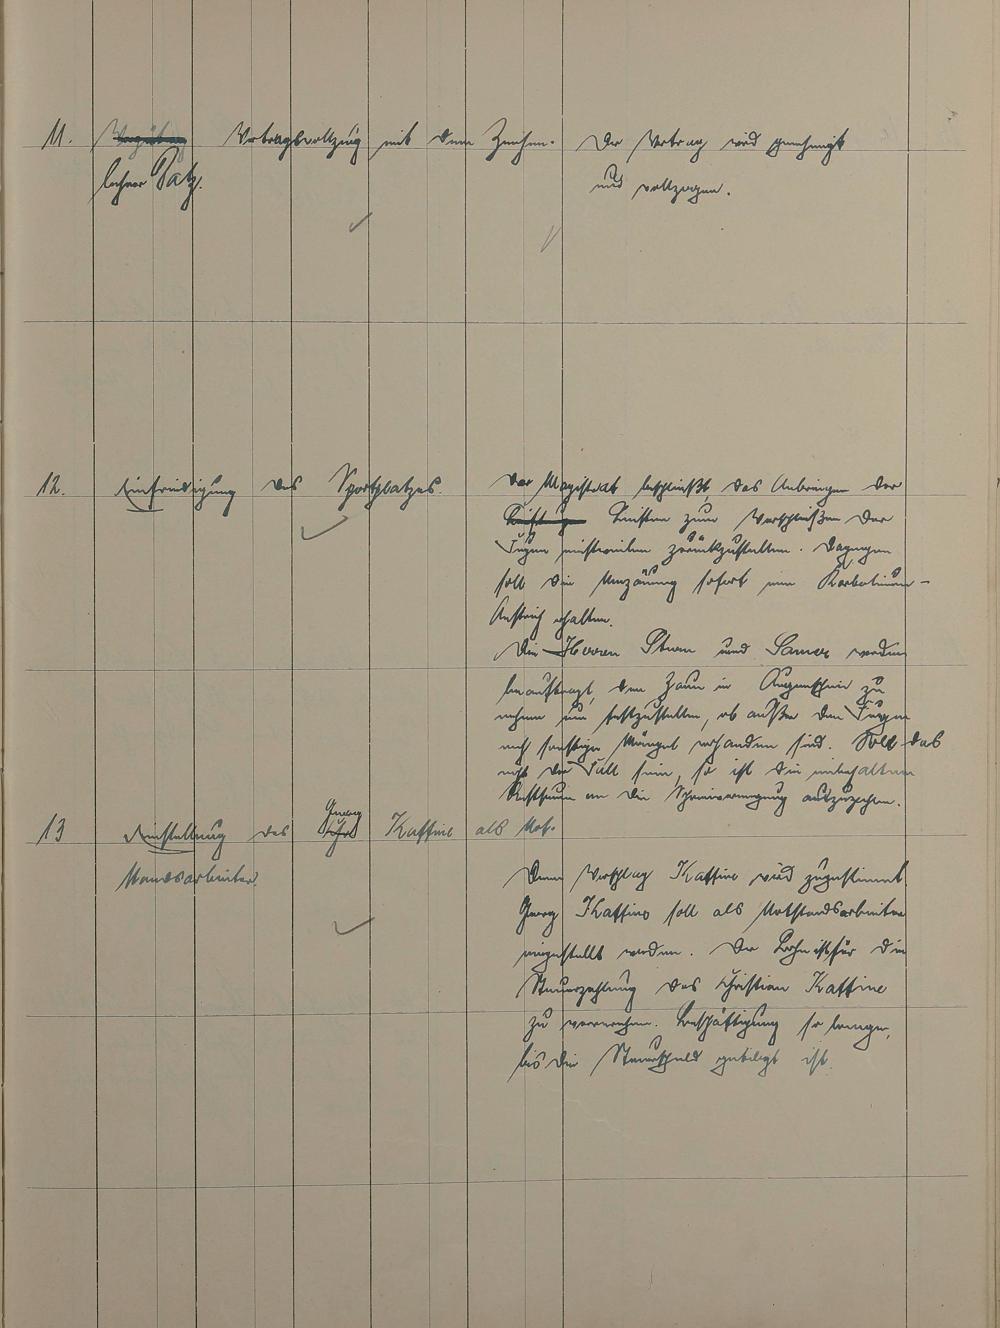 11. Vertragsvollzug mit dem Ziechen-
lehner Patz.
Der Vertrag wird genehmigt
und vollzogen.
12. Einfriedigung des Sportplatzes.
Der Magistrat beschließt, das Anbringen der
Leisten zum Verschließen der
Fugen einstweilen zurückzustellen. Dagegen
soll die Umzäunung sofort einen Karbolineum-
Anstrich erhalten.
Die Herren Sturm und werden
beauftragt, den Zaun in Augenschein zu
nehmen um festzustellen, ob außer den Fugen
noch sonstige Mängel vorhanden sind. Soll das
nicht der Fall sein, so ist die einbehaltene
Restsumme an die Schreinervereinigung auszuzahlen.
13 Einstellung des Georg Kaffine als Not-
standsarbeiter.
Dem Vorschlag Kaffine wird zugestimmt.
Georg Kaffine soll als Notstandsarbeiter
eingestellt werden. Der Lohn ist für die
Steuerzahlung des Christian Kaffine
zu verrechnen. Beschäftigung so lange,
bis die Steuerschuld getilgt ist.